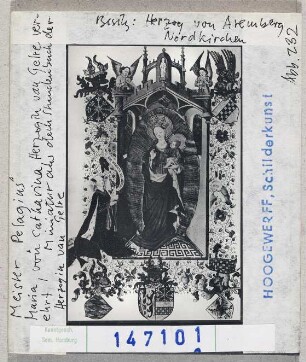 Besitz: Herzog von Aremberg
Nordkirchen
Abb. 232
Meister Pelagius
Maria, von Catharina Herzogin van Gelre ver-
ehrt, Miniatur aus dem Stundenbuch der
Herzogin van Gelre
HOOGEWERFF, Schilderkunst
Kunstgesch.
Sem. Hamburg
147101